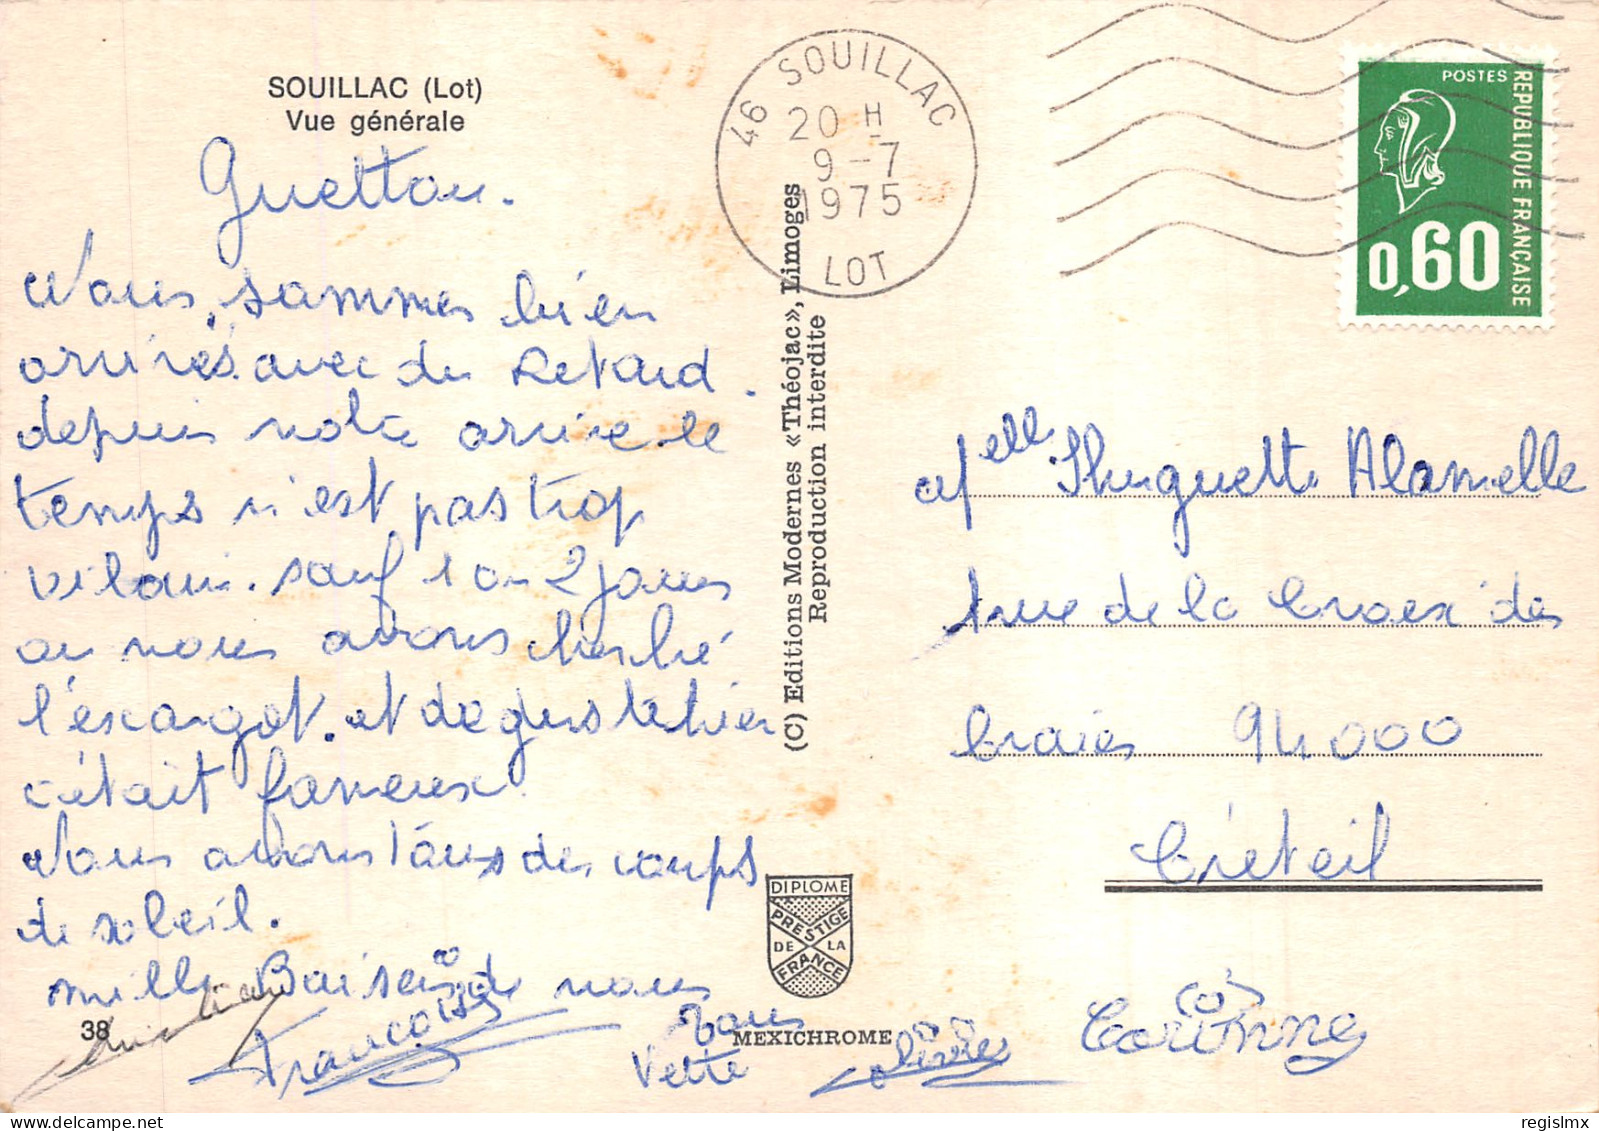 SOUILLAC (Lot)
Vue générale
Guettou.
Nous sommes bien
arrivés avec du Retard.
depuis notre arrivée le
temps n'est pas trop
vilain. sauf 1 ou 2 jours
ou nous avons cherché
l'escargot. et déguster hier
c'était fameux
Nous avons tous des coups
de soleil.
mille Baisers de nous
Tous
Christian
Françoise
Vette
Olivier
Corinne
38
(C) Editions Modernes «Théojac», Limoges
Reproduction interdite
DIPLOME
PRESTIGE
DE LA
FRANCE
MEXICHROME
46 SOUILLAC
20 H
9-7
1975
LOT
POSTES
REPUBLIQUE FRANÇAISE
0,60
Melle Huguette Alamelle
1 rue de la Croix des
Craies 94000
Créteil
regislmx